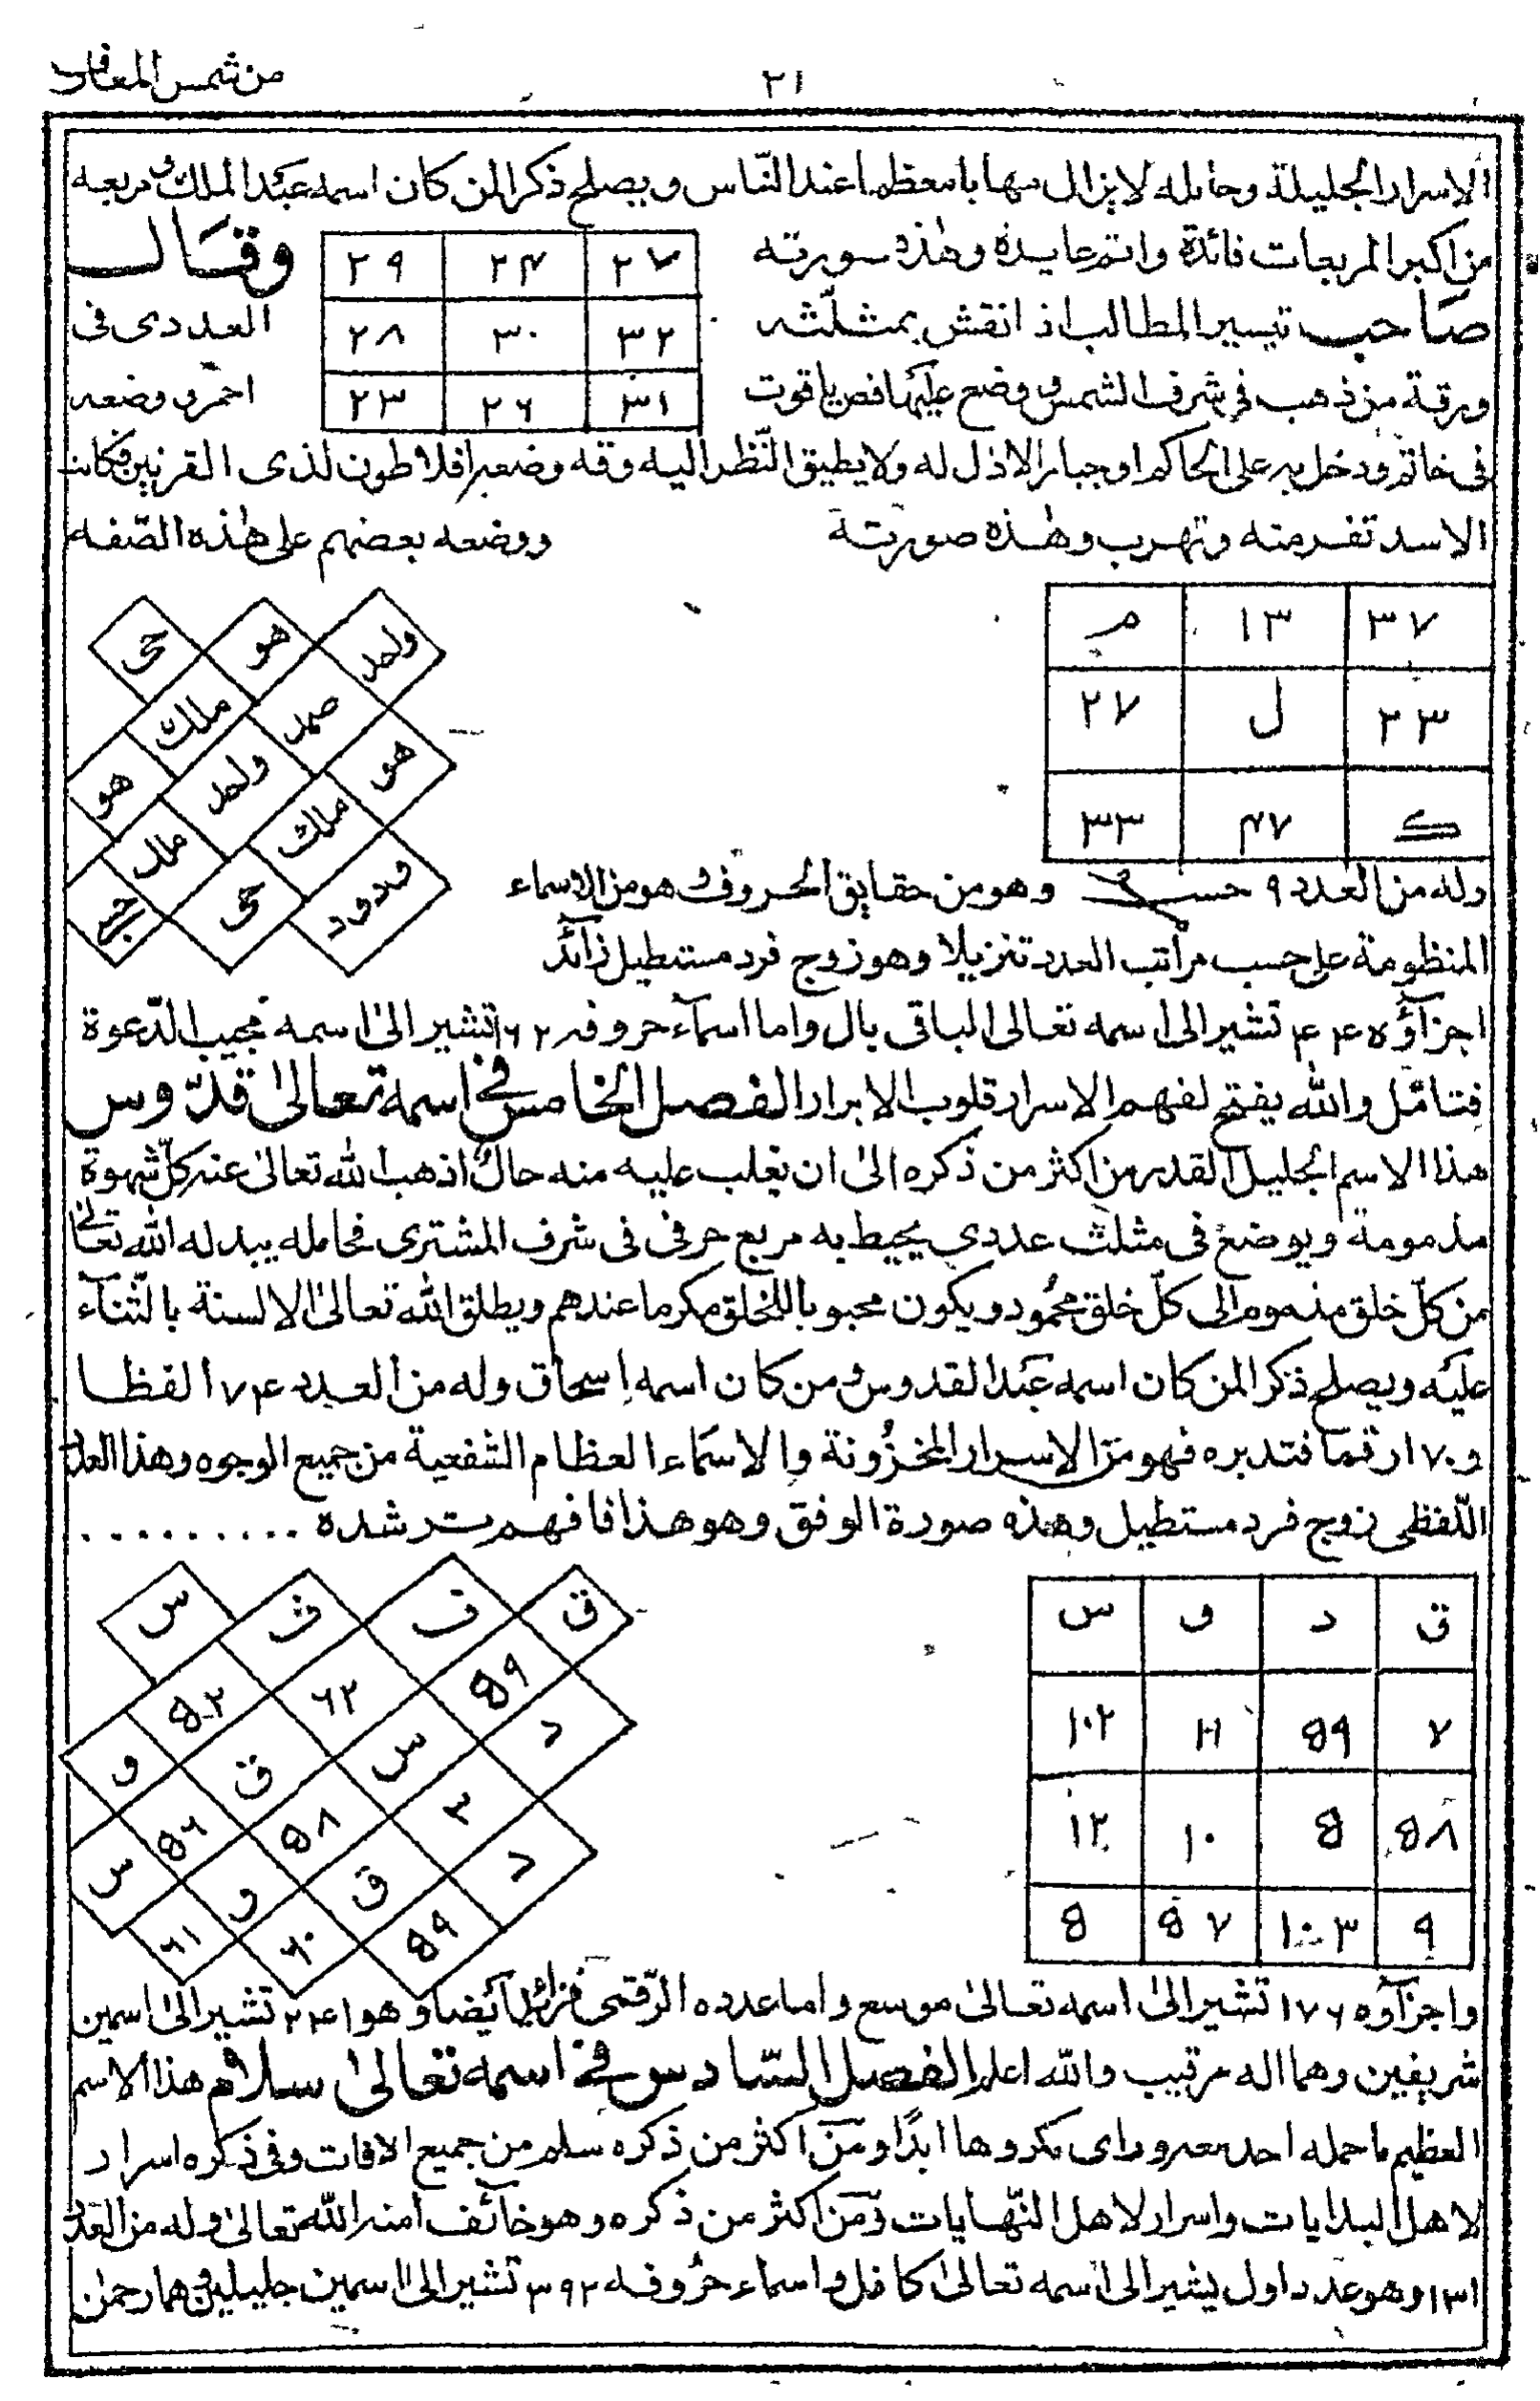 من شمس المعارف
٢١
الاسرار الجليلة وحامله لا يزال مهابا معظما عند النّاس ويصلح ذكرا لمن كان اسمه عبد الملك ومربعه
من اكبر المربعات فائدة واتم عايدة وهذه سورته
وقال
٢٧ ٢٤ ٢٩
٣٢ ٣٠ ٢٨
٣١ ٢٦ ٢٣
صاحب تيسير المطالب اذ انقش بمثلّثه العددى فى
ورقة من ذهب في شرف الشمس وضع عليها فص ياقوت احمر ووضعه
فى خاتم ودخل به على الحاكم او جبار الا ذل له ولا يطيق النّظر اليه وقد وضعه افلاطون لذى القرنين فكانت
الاسد تفر منه وتهرب وهذه صورتة ووضعه بعضهم على هذه الصّفه
٣٧ ١٣ م
٢٣ ل ٢٧
ك ٤٧ ٣٣
حى هو واحد
ملك صمد
هو واحد هو
ملك ملك
حى ودود
وله من العدد ٩ حسب وهو من حقايق الحروف وهو من الاسماء
المنظومة على حسب مراتب العدد تنزيلا وهو زوج فرد مستطيل زائد
اجزآؤه ٤٤ تشير الى اسمه تعالى الباقى بال واما اسمآء حروفه ٢٦٢ تشير الى اسمه مجيب الدّعوة
فتامّل والله يفتح لفهم الاسرار قلوب الابرار الفصل الخامس في اسمه تعالىٰ قدّوس
هذا الاسم الجليل القدر من اكثر من ذكره الىٰ ان يغلب عليه منه حالٌ اذهب الله تعالىٰ عنه كلّ شهوة
مذمومة ويوضع فى مثلث عددي يحيط به مربع حرفى فى شرف المشترى فحامله يبدله الله تعالىٰ
من كلّ خلق مذموم الى كلّ خلق محمود ويكون محبوبا للخلق مكرما عندهم ويطلق الله تعالىٰ الالسنة بالثّنآء
عليه ويصلح ذكرا لمن كان اسمه عبد القدوس ومن كان اسمه إسحاق وله من العدد ١٧٤ لفظا
و١٧٠ رقما فتدبره فهو من الاسرار المخزونة والاسماء العظام الشفعية من جميع الوجوه وهذا العدد
اللّفظى زوج فرد مستطيل وهذه صورة الوفق وهو هذا فافهم ترشده ..........
ق د و س
٧ ٥٩ ١٠٢
٥٨ ٥ ١٠ ١٢
٩ ١٠٣ ٥٧ ٥
س ف ق
٥٢ ٦٢ ٥٩
و ق س د
٥٦ ٥٨ ٣
س و ق د
٦١ ٦٠ ٥٩
واجزآوه ١٧٦ تشير الىٰ اسمه تعالىٰ موسع واما عدده الرّقمى فزائد ايضا وهو ٢٢٤١ تشير الىٰ اسمين
شريفين وهما اله مرقيب والله اعلم الفصل السّادس في اسمه تعالىٰ سلام هذا الاسم
العظيم ما حمله احد معه وراى مكروها ابدًا ومن اكثر من ذكره سلم من جميع الافات وفى ذكره اسرار
لاهل البدايات واسرار لاهل النّهايات ومن اكثر من ذكره وهو خآئف امنه الله تعالىٰ وله من العدد
١٣١ وهو عدد اول يشير الى اسمه تعالىٰ كافل واسماء حروفه ٣٩٢ تشير الى اسمين جليلين وهما رحمٰن